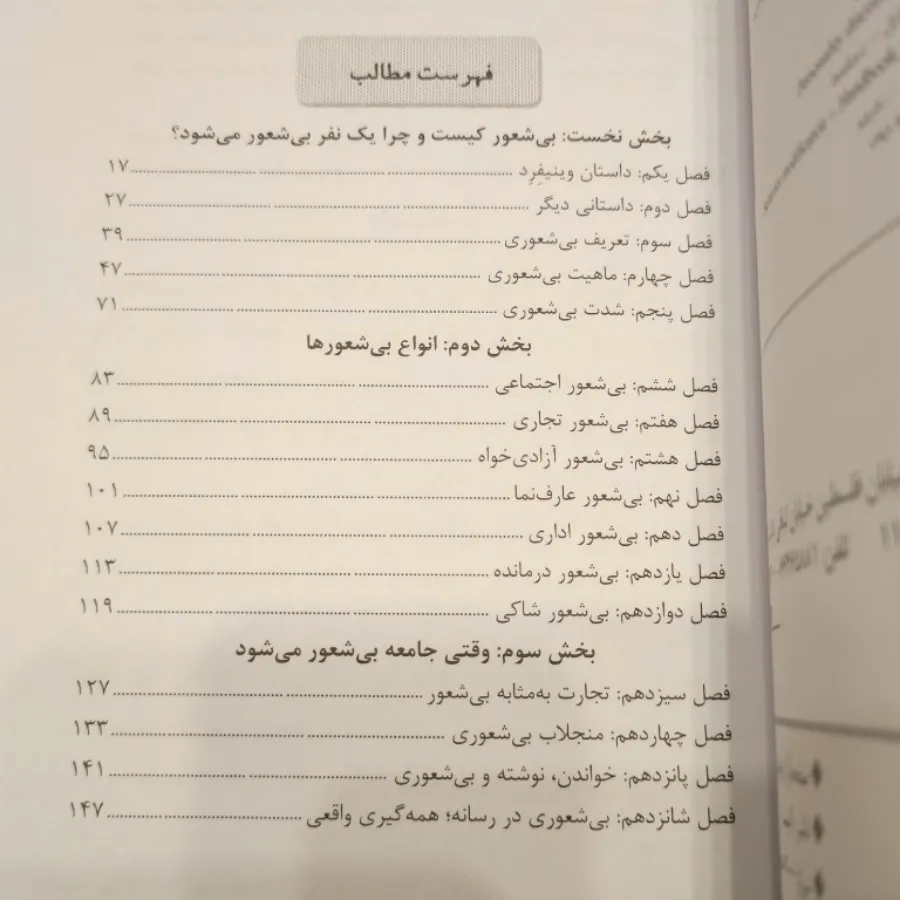 فهرست مطالب
بخش نخست: بی‌شعور کیست و چرا یک نفر بی‌شعور می‌شود؟
فصل یکم: داستان وینیفِرِد ........ ۱۷
فصل دوم: داستانی دیگر ........ ۲۷
فصل سوم: تعریف بی‌شعوری ........ ۳۹
فصل چهارم: ماهیت بی‌شعوری ........ ۴۷
فصل پنجم: شدت بی‌شعوری ........ ۷۱
بخش دوم: انواع بی‌شعورها
فصل ششم: بی‌شعور اجتماعی ........ ۸۳
فصل هفتم: بی‌شعور تجاری ........ ۸۹
فصل هشتم: بی‌شعور آزادی‌خواه ........ ۹۵
فصل نهم: بی‌شعور عارف‌نما ........ ۱۰۱
فصل دهم: بی‌شعور اداری ........ ۱۰۷
فصل یازدهم: بی‌شعور درمانده ........ ۱۱۳
فصل دوازدهم: بی‌شعور شاکی ........ ۱۱۹
بخش سوم: وقتی جامعه بی‌شعور می‌شود
فصل سیزدهم: تجارت به‌مثابه بی‌شعور ........ ۱۲۷
فصل چهاردهم: منجلاب بی‌شعوری ........ ۱۳۳
فصل پانزدهم: خواندن، نوشته و بی‌شعوری ........ ۱۴۱
فصل شانزدهم: بی‌شعوری در رسانه؛ همه‌گیری واقعی ........ ۱۴۷